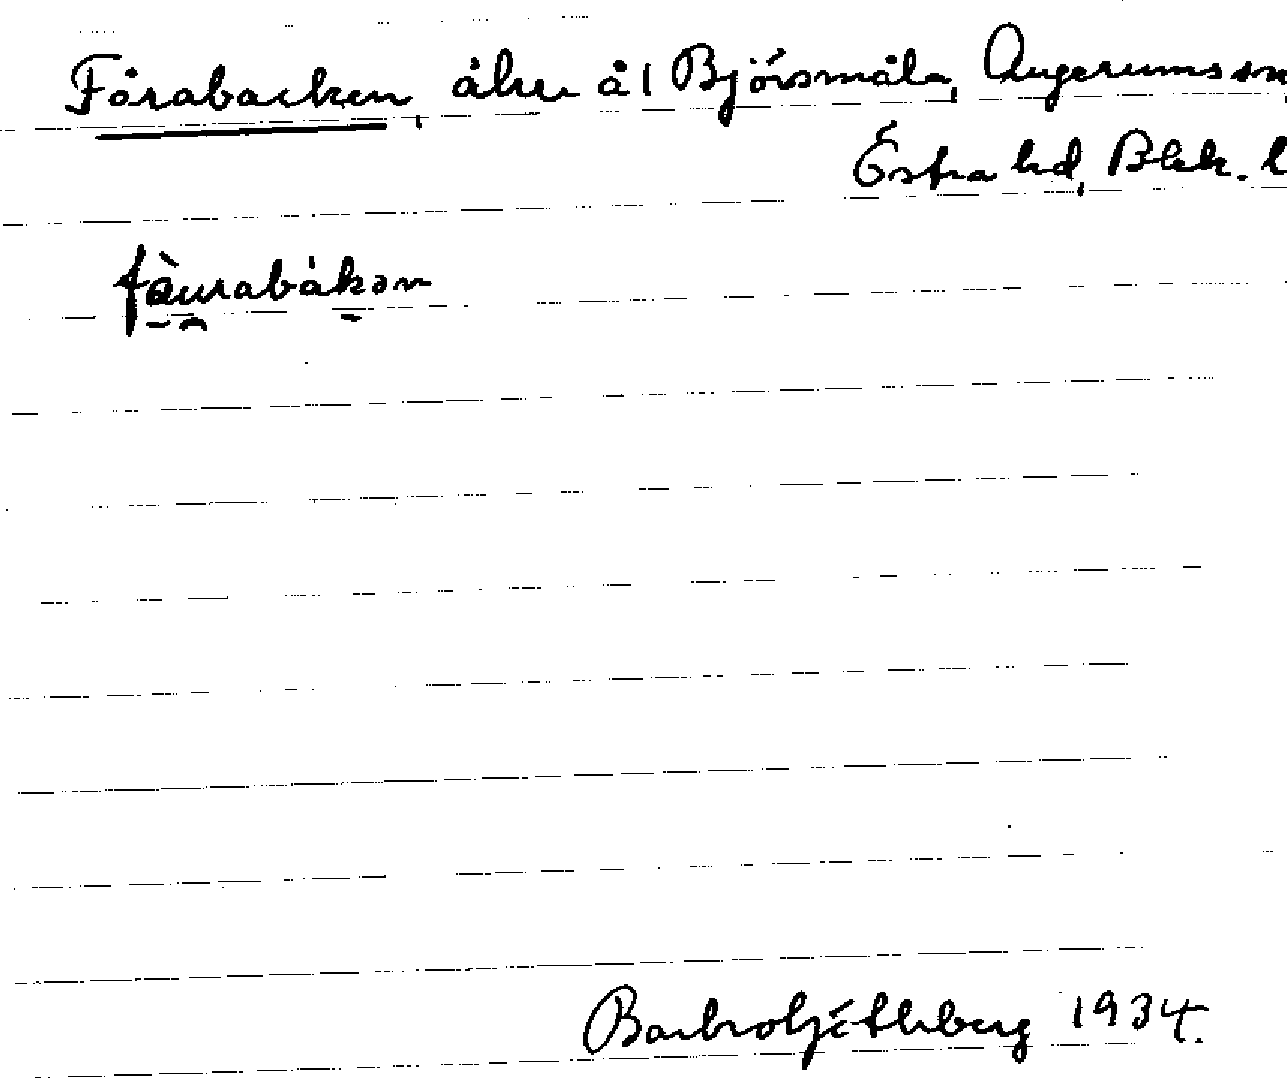 Fårabacken, åker å 1 Björsmåla, Augerums sn,
Östra hd, Blek. l
fàurabákən
Barbro Götheberg 1934.